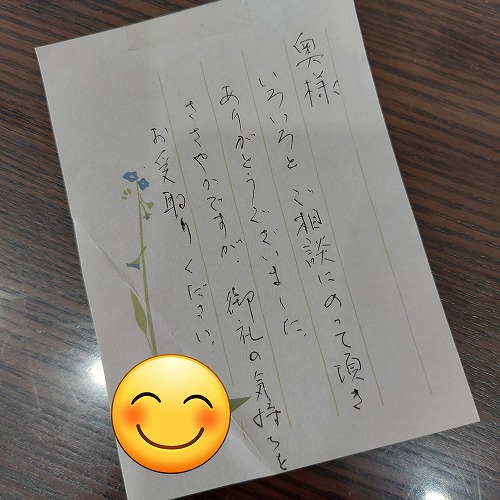 奥様
いろいろと ご相談にのって頂き
ありがとうございました。
ささやかですが、御礼の気持ちを
お受取りください。